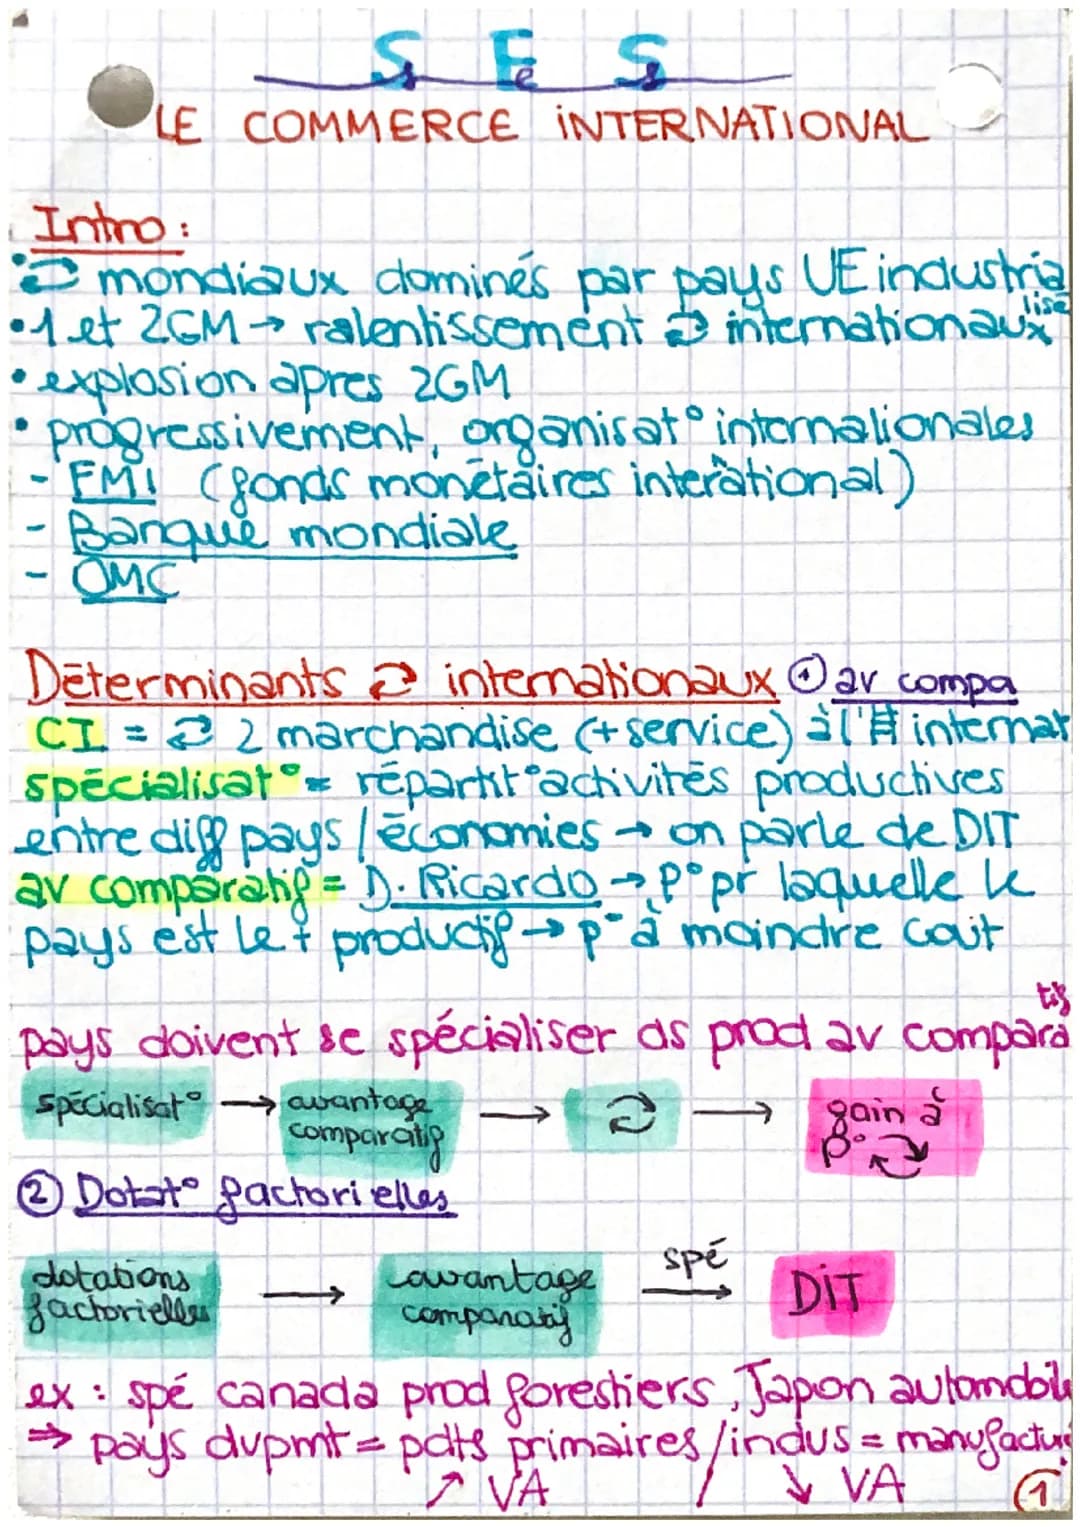 S E S
LE COMMERCE INTERNATIONAL
Intro :
• ⇄ mondiaux dominés par pays UE industria
lisé
• 1 et 2GM → ralentissement ⇄ internationaux
• explosion apres 2GM
• progressivement, organisat° internationales
- FMI (fonds monétaires international)
- Banque mondiale
- OMC
Déterminants ⇄ internationaux ① av compa
CI = ⇄ 2 marchandise (+ service) à l' internat
spécialisat° = répartit° activités productives
entre diff pays / économies → on parle de DIT
av comparatif = D. Ricardo → p° pr laquelle le
pays est le + productif → p° à moindre cout
tif
pays doivent se spécialiser ds prod av compara
spécialisat° → avantage comparatif → ⇄ → gain à p° ⇄
② Dotat° factorielles
dotations factorielles → avantage comparatif → spé DIT
ex : spé canada prod forestiers, Japon automobile
⇒ pays dvpmt = pdts primaires / indus = manufacturé
↗ VA / ↘ VA
①